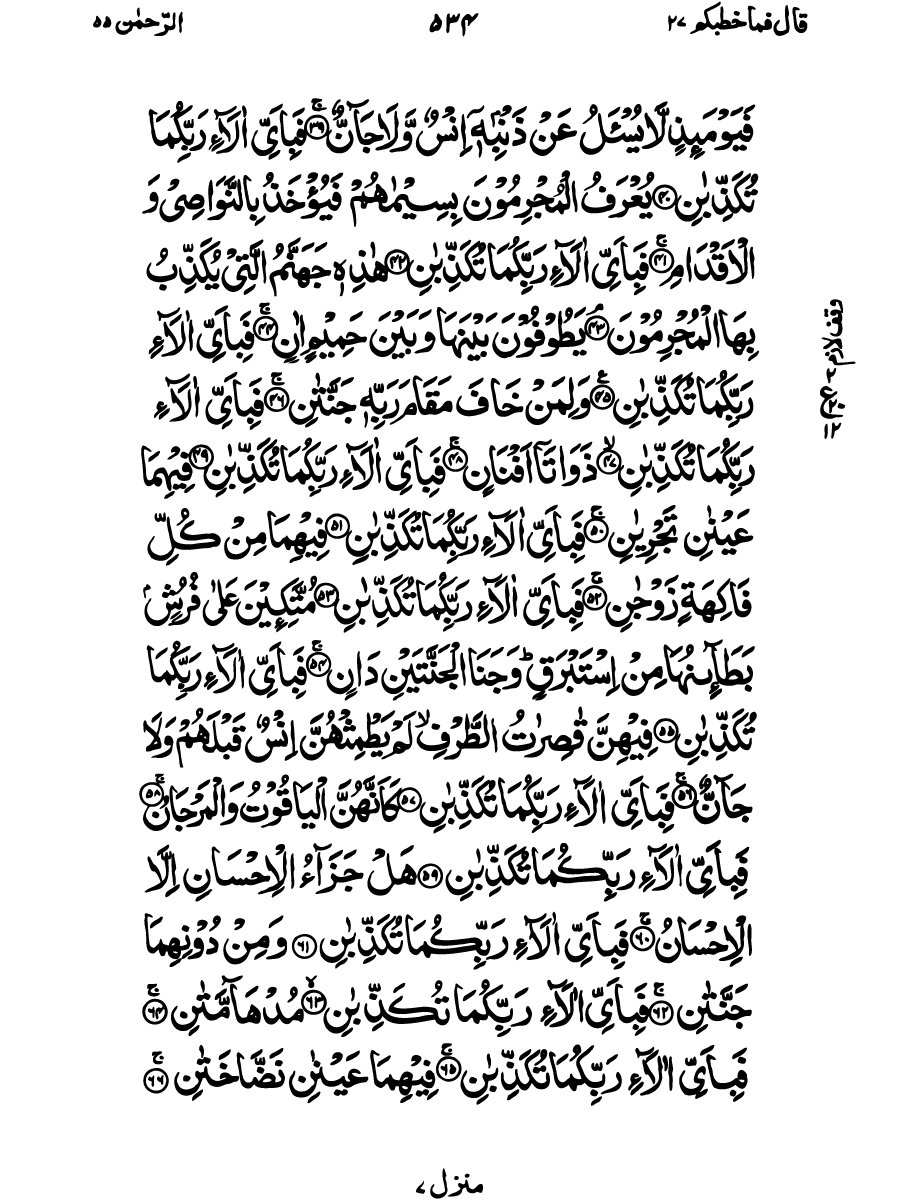 قال فما خطبكم ٢٧ ٥٣٤ الرّحمٰن ٥٥
فَيَوْمَىِٕذٍ لَّا يُسْـَٔلُ عَنْ ذَنْۢبِهٖۤ اِنْسٌ وَّلَا جَآنٌّۚ ﴿٣٩﴾ فَبِاَىِّ اٰلَآءِ رَبِّكُمَا
تُكَذِّبٰنِ ﴿٤٠﴾ يُعْرَفُ الْمُجْرِمُوْنَ بِسِيْمٰىهُمْ فَيُؤْخَذُ بِالنَّوَاصِىْ وَ
الْاَقْدَامِۚ ﴿٤١﴾ فَبِاَىِّ اٰلَآءِ رَبِّكُمَا تُكَذِّبٰنِ ﴿٤٢﴾ هٰذِهٖ جَهَنَّمُ الَّتِىْ يُكَذِّبُ
بِهَا الْمُجْرِمُوْنَۘ ﴿٤٣﴾ يَطُوْفُوْنَ بَيْنَهَا وَبَيْنَ حَمِيْمٍ اٰنٍۚ ﴿٤٤﴾ فَبِاَىِّ اٰلَآءِ
رَبِّكُمَا تُكَذِّبٰنِ ﴿٤٥﴾ وَلِمَنْ خَافَ مَقَامَ رَبِّهٖ جَنَّتٰنِۚ ﴿٤٦﴾ فَبِاَىِّ اٰلَآءِ
رَبِّكُمَا تُكَذِّبٰنِۙ ﴿٤٧﴾ ذَوَاتَاۤ اَفْنَانٍۚ ﴿٤٨﴾ فَبِاَىِّ اٰلَآءِ رَبِّكُمَا تُكَذِّبٰنِ ﴿٤٩﴾ فِيْهِمَا
عَيْنٰنِ تَجْرِيٰنِۚ ﴿٥٠﴾ فَبِاَىِّ اٰلَآءِ رَبِّكُمَا تُكَذِّبٰنِ ﴿٥١﴾ فِيْهِمَا مِنْ كُلِّ
فَاكِهَةٍ زَوْجٰنِۚ ﴿٥٢﴾ فَبِاَىِّ اٰلَآءِ رَبِّكُمَا تُكَذِّبٰنِ ﴿٥٣﴾ مُتَّكِـِٕيْنَ عَلٰى فُرُشٍۭ
بَطَآىِٕنُهَا مِنْ اِسْتَبْرَقٍؕ وَجَنَا الْجَنَّتَيْنِ دَانٍۚ ﴿٥٤﴾ فَبِاَىِّ اٰلَآءِ رَبِّكُمَا
تُكَذِّبٰنِ ﴿٥٥﴾ فِيْهِنَّ قٰصِرٰتُ الطَّرْفِۙ لَمْ يَطْمِثْهُنَّ اِنْسٌ قَبْلَهُمْ وَلَا
جَآنٌّۚ ﴿٥٦﴾ فَبِاَىِّ اٰلَآءِ رَبِّكُمَا تُكَذِّبٰنِ ﴿٥٧﴾ كَاَنَّهُنَّ الْيَاقُوْتُ وَالْمَرْجَانُۚ ﴿٥٨﴾
فَبِاَىِّ اٰلَآءِ رَبِّكُمَا تُكَذِّبٰنِ ﴿٥٩﴾ هَلْ جَزَآءُ الْاِحْسَانِ اِلَّا
الْاِحْسَانُۚ ﴿٦٠﴾ فَبِاَىِّ اٰلَآءِ رَبِّكُمَا تُكَذِّبٰنِ ﴿٦١﴾ وَمِنْ دُوْنِهِمَا
جَنَّتٰنِۚ ﴿٦٢﴾ فَبِاَىِّ اٰلَآءِ رَبِّكُمَا تُكَذِّبٰنِۙ ﴿٦٣﴾ مُدْهَآمَّتٰنِۚ ﴿٦٤﴾
فَبِاَىِّ اٰلَآءِ رَبِّكُمَا تُكَذِّبٰنِۚ ﴿٦٥﴾ فِيْهِمَا عَيْنٰنِ نَضَّاخَتٰنِۚ ﴿٦٦﴾
وقف لازم
منزل ٧